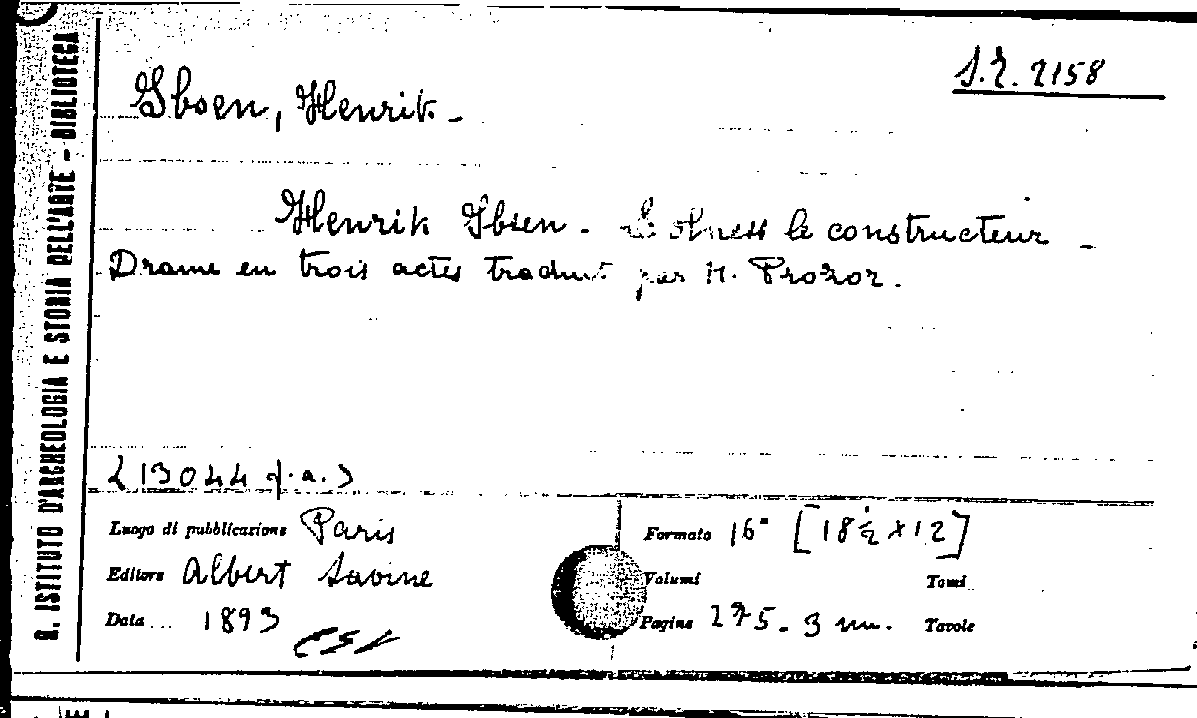 R. ISTITUTO D'ARCHEOLOGIA E STORIA DELL'ARTE - BIBLIOTECA
Ibsen, Henrik -
Henrik Ibsen - Solness le constructeur -
Drame en trois actes traduit par M. Prozor.
(13044 f.a.)
Luogo di pubblicazione Paris
Editore Albert Savine
Data 1893
Formato 16° [18½ x 12]
Volumi Tomi
Pagine 275 - 3 nn. Tavole